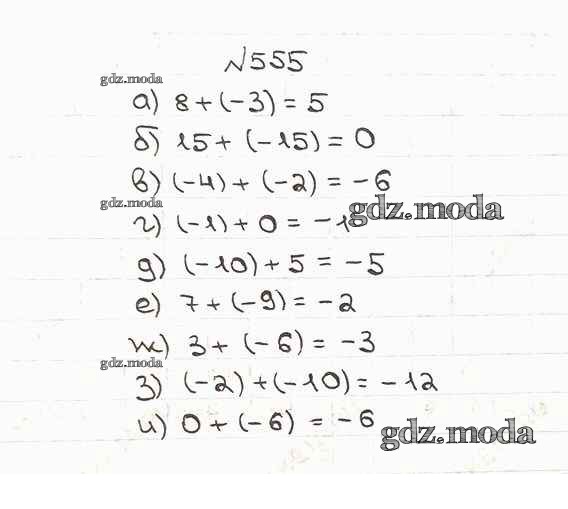 №555
gdz.moda
а) 8 + (-3) = 5
б) 15 + (-15) = 0
в) (-4) + (-2) = -6
gdz.moda
gdz.moda
г) (-1) + 0 = -1
д) (-10) + 5 = -5
е) 7 + (-9) = -2
ж) 3 + (-6) = -3
gdz.moda
з) (-2) + (-10) = -12
и) 0 + (-6) = -6
gdz.moda